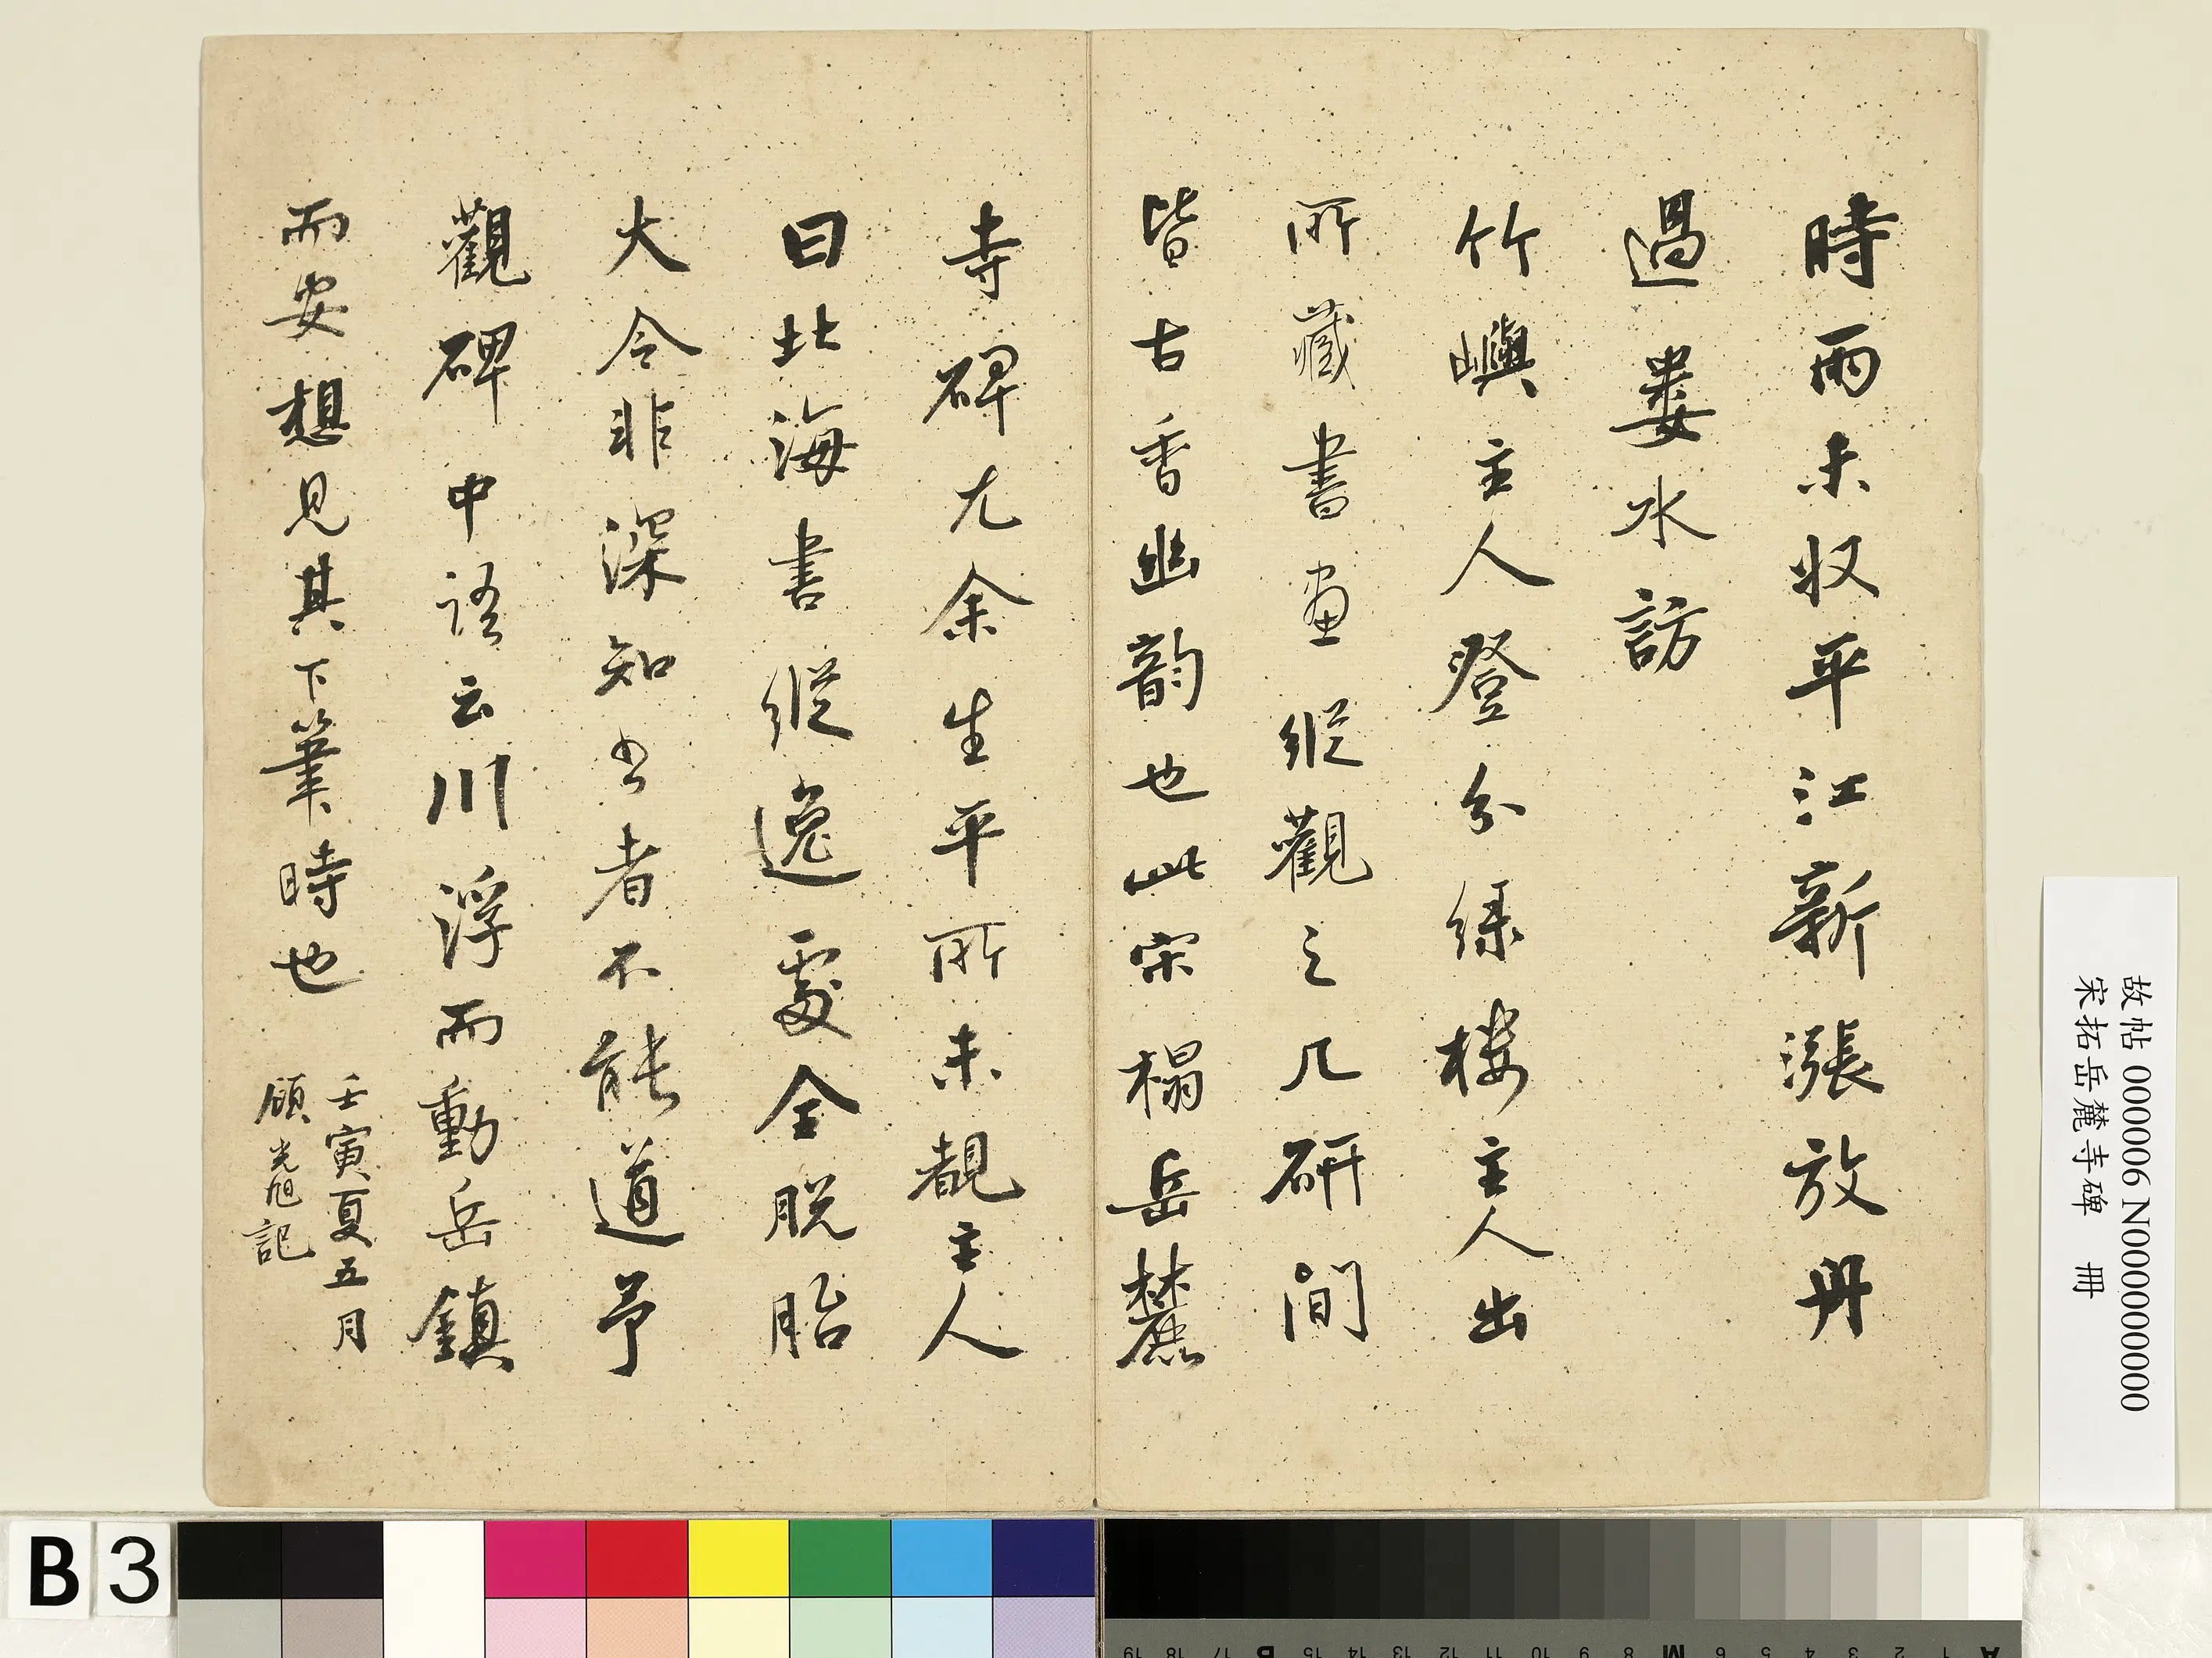 時雨未收平江新漲放舟
過婁水訪
竹嶼主人登分綠樓主人出
所藏書畫縱觀之几研間
皆古香幽韵也此宋榻岳麓
寺碑尤余生平所未覩主人
曰北海書縱逸處全脱胎
大令非深知書者不能道予
觀碑中語云川浮而動岳鎮
而安想見其下筆時也
壬寅夏五月
顧光旭記
故帖 000006 N000000000
宋拓岳麓寺碑 冊
B 3
A 1 2 3 4 5 6 M 8 9 10 11 12 13 14 15 B 17 18 19